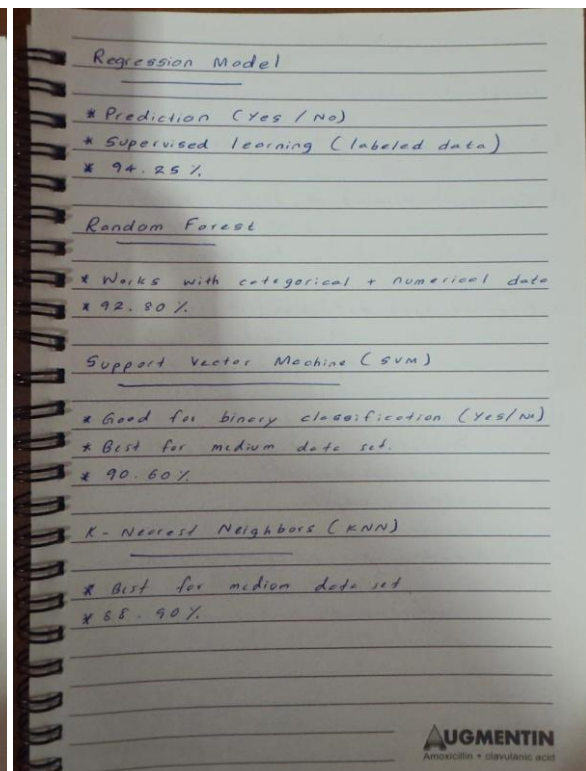 Regression Model
* Prediction (Yes / No)
* Supervised learning (labeled data)
* 94.25 %
Random Forest
* Works with categorical + numerical data
* 92.80 %
Support Vector Machine (SVM)
* Good for binary classification (Yes/No)
* Best for medium data set.
* 90.60 %
K-Nearest Neighbors (KNN)
* Best for medium data set
* 88.90 %
AUGMENTIN
Amoxicillin + clavulanic acid